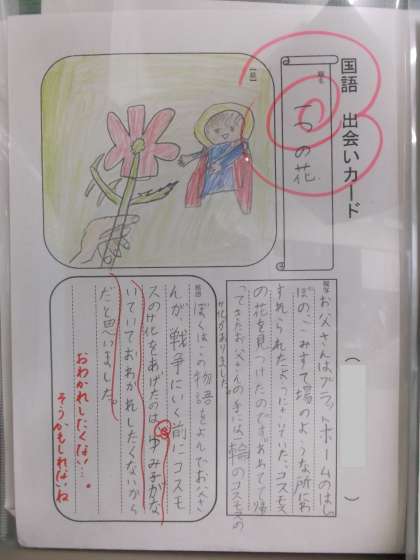 国語 出会いカード
題名
一つの花
絵
視写
お父さんはプラットホームのはし
っぽの、ごみすて場のような所に、わ
すれられたようにさいていたコスモス
の花を見つけたのです。あわてて帰
ってきたお父さんの手には、一輪のコスモスの
花がありました。
感想
ぼくは、この物語をよんでお父さ
んが戦争にいく前にコスモ
スの花をあげたのは、ゆみ子がな
いていておわかれしたくないから
だと思いました。
おわかれしたくない…。
そうかもしれないね